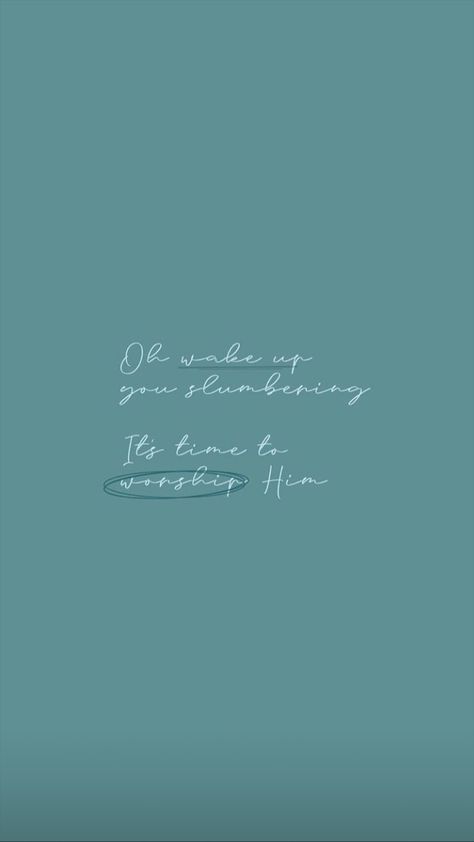 Oh wake up
you slumbering
It's time to
worship Him